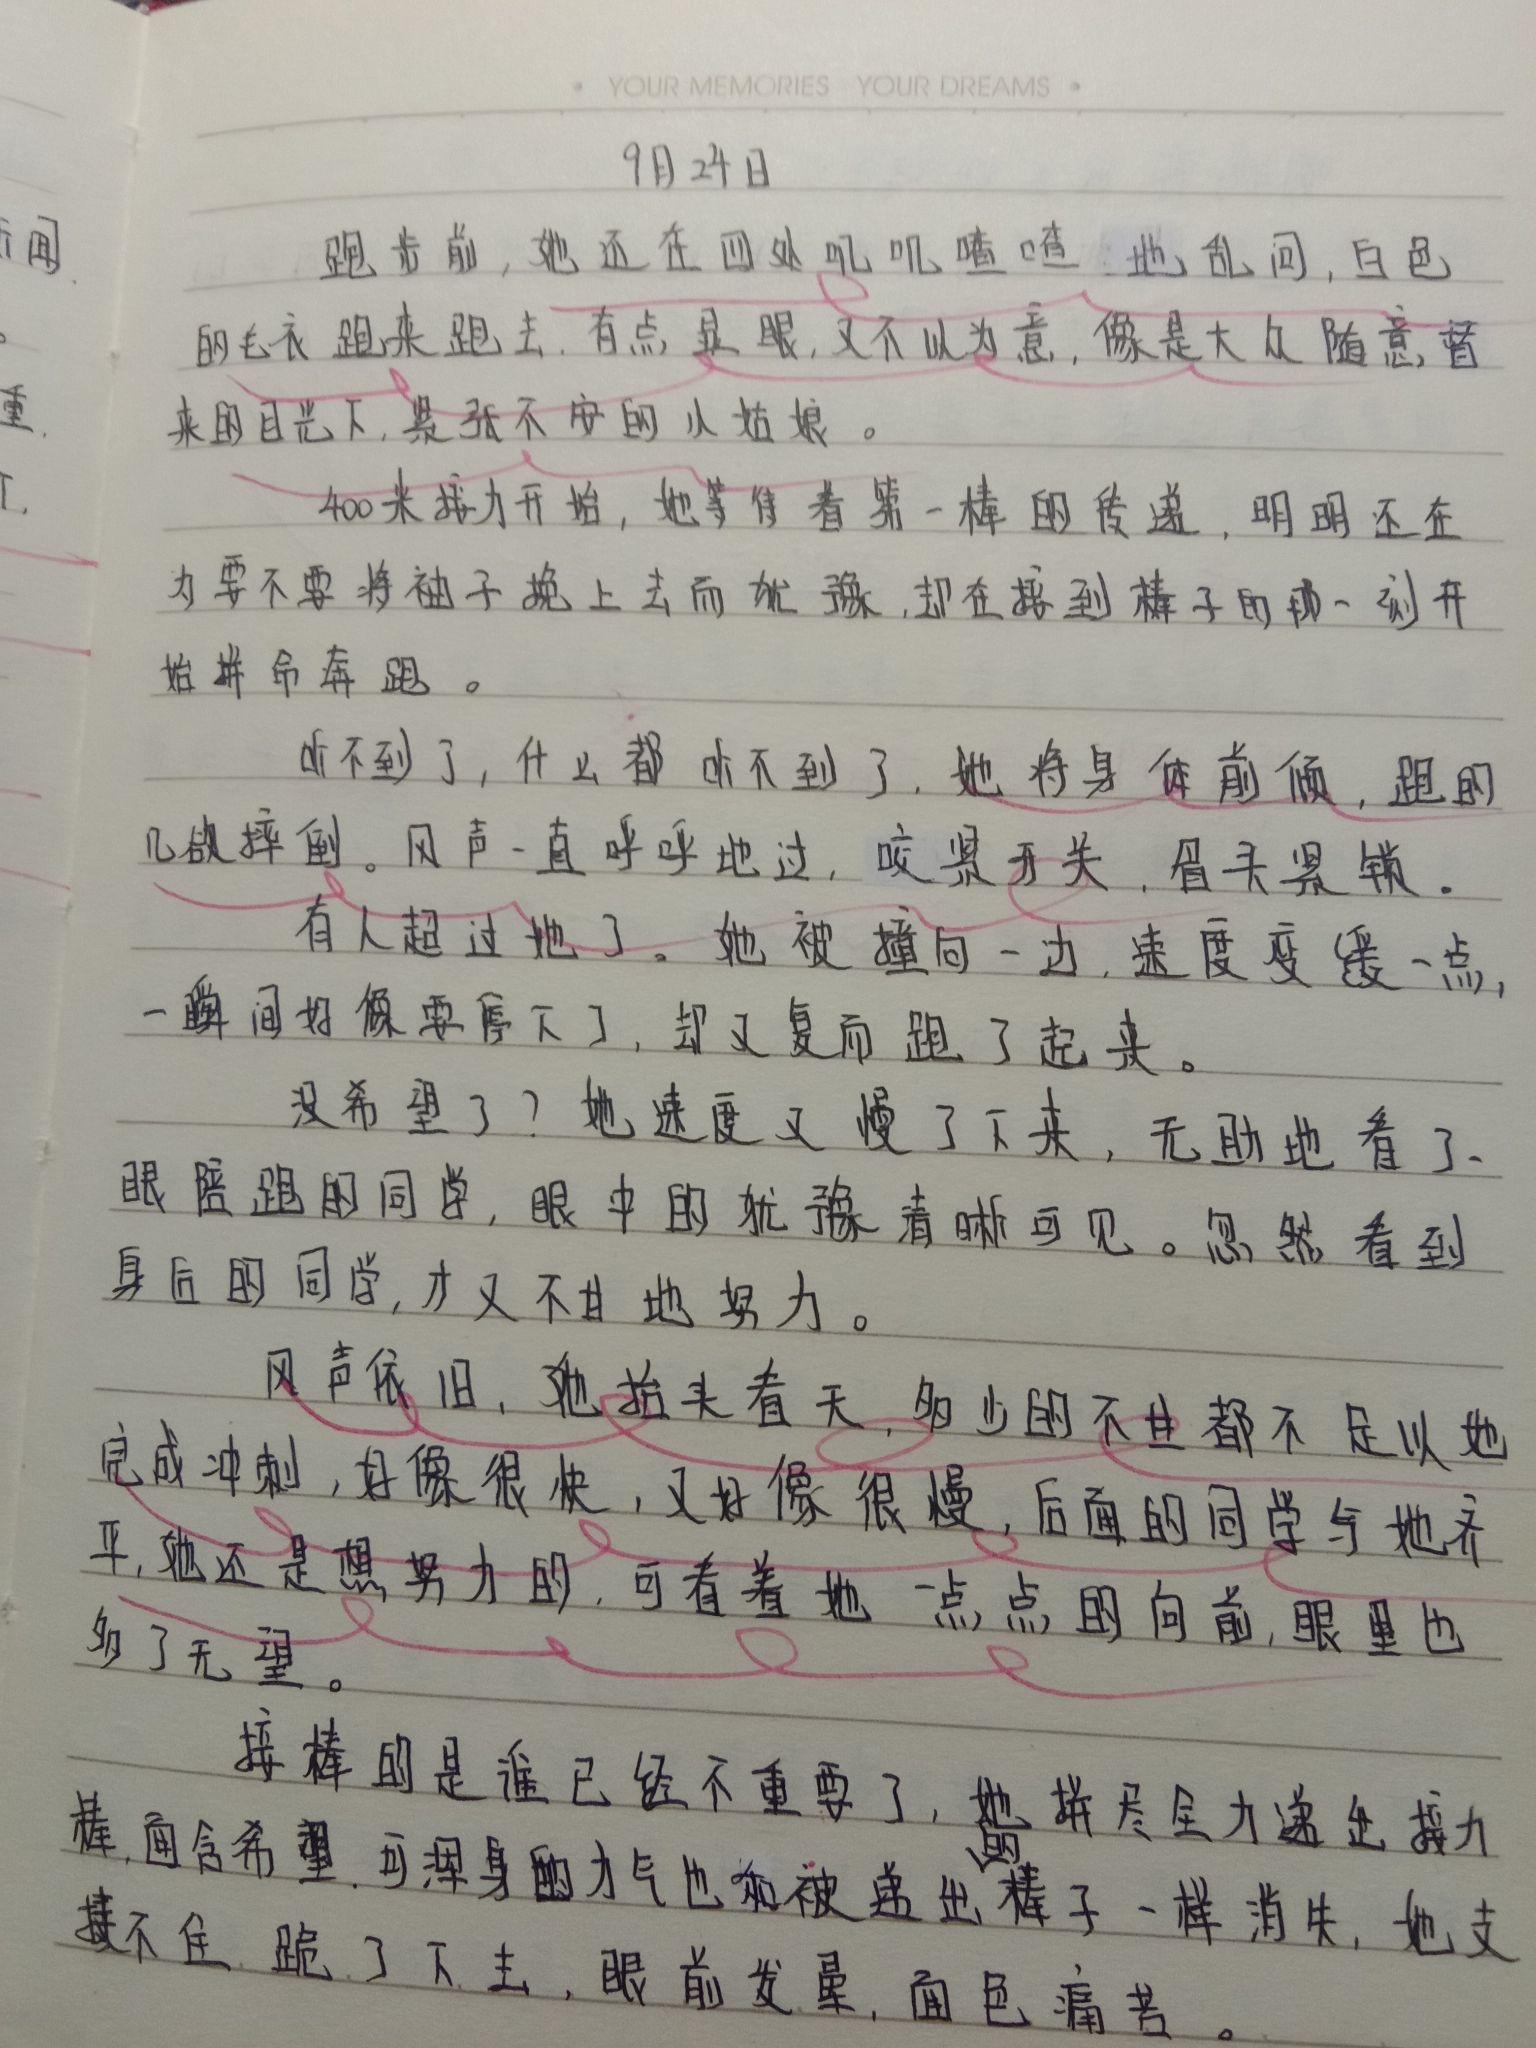 YOUR MEMORIES YOUR DREAMS
9月24日
跑步前,她还在四处叽叽喳喳地乱问,白色
的毛衣跑来跑去,有点显眼,又不以为意,像是大众随意瞥
来的目光下,紧张不安的小姑娘。
400米接力开始,她等待着第一棒的传递,明明还在
为要不要将袖子挽上去而犹豫,却在接到棒子的那一刻开
始拼命奔跑。
听不到了,什么都听不到了,她将身体前倾,跑的
几欲摔倒。风声一直呼呼地过,咬紧牙关,眉头紧锁.
有人超过她了。她被撞向一边,速度变缓一点,
一瞬间好像要停下了,却又复而跑了起来。
没希望了?她速度又慢了下来,无助地看了一
眼陪跑的同学,眼中的犹豫清晰可见。忽然看到
身后的同学,才又不甘地努力。
风声依旧,她抬头看天,多少的不甘都不足以她
完成冲刺,好像很快,又好像很慢,后面的同学与她齐
平,她还是想努力的,可看着她一点点的向前,眼里也
多了无望。
接棒的是谁已经不重要了,她拼尽全力递出接力
棒,面含希望,可浑身的力气也如被递出的棒子一样消失,她支
接不住,跪了下去,眼前发晕,面色痛苦。
新闻.
重.